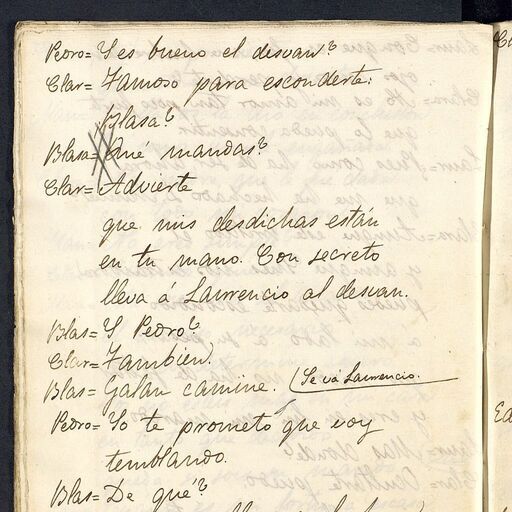 Pedro= Y es bueno el desvan?
Clar= Famoso para esconderte:
Blasa?
Blasa= Qué mandas?
Clar= Advierte
que mis desdichas están
en tu mano. Con secreto
lleva á Laurencio al desvan.
Blas= Y Pedro?
Clar= Tambien.
Blas= Galan camine. (Se vá Laurencio.
Pedro= Yo te prometo que voy
temblando.
Blas= De qué?